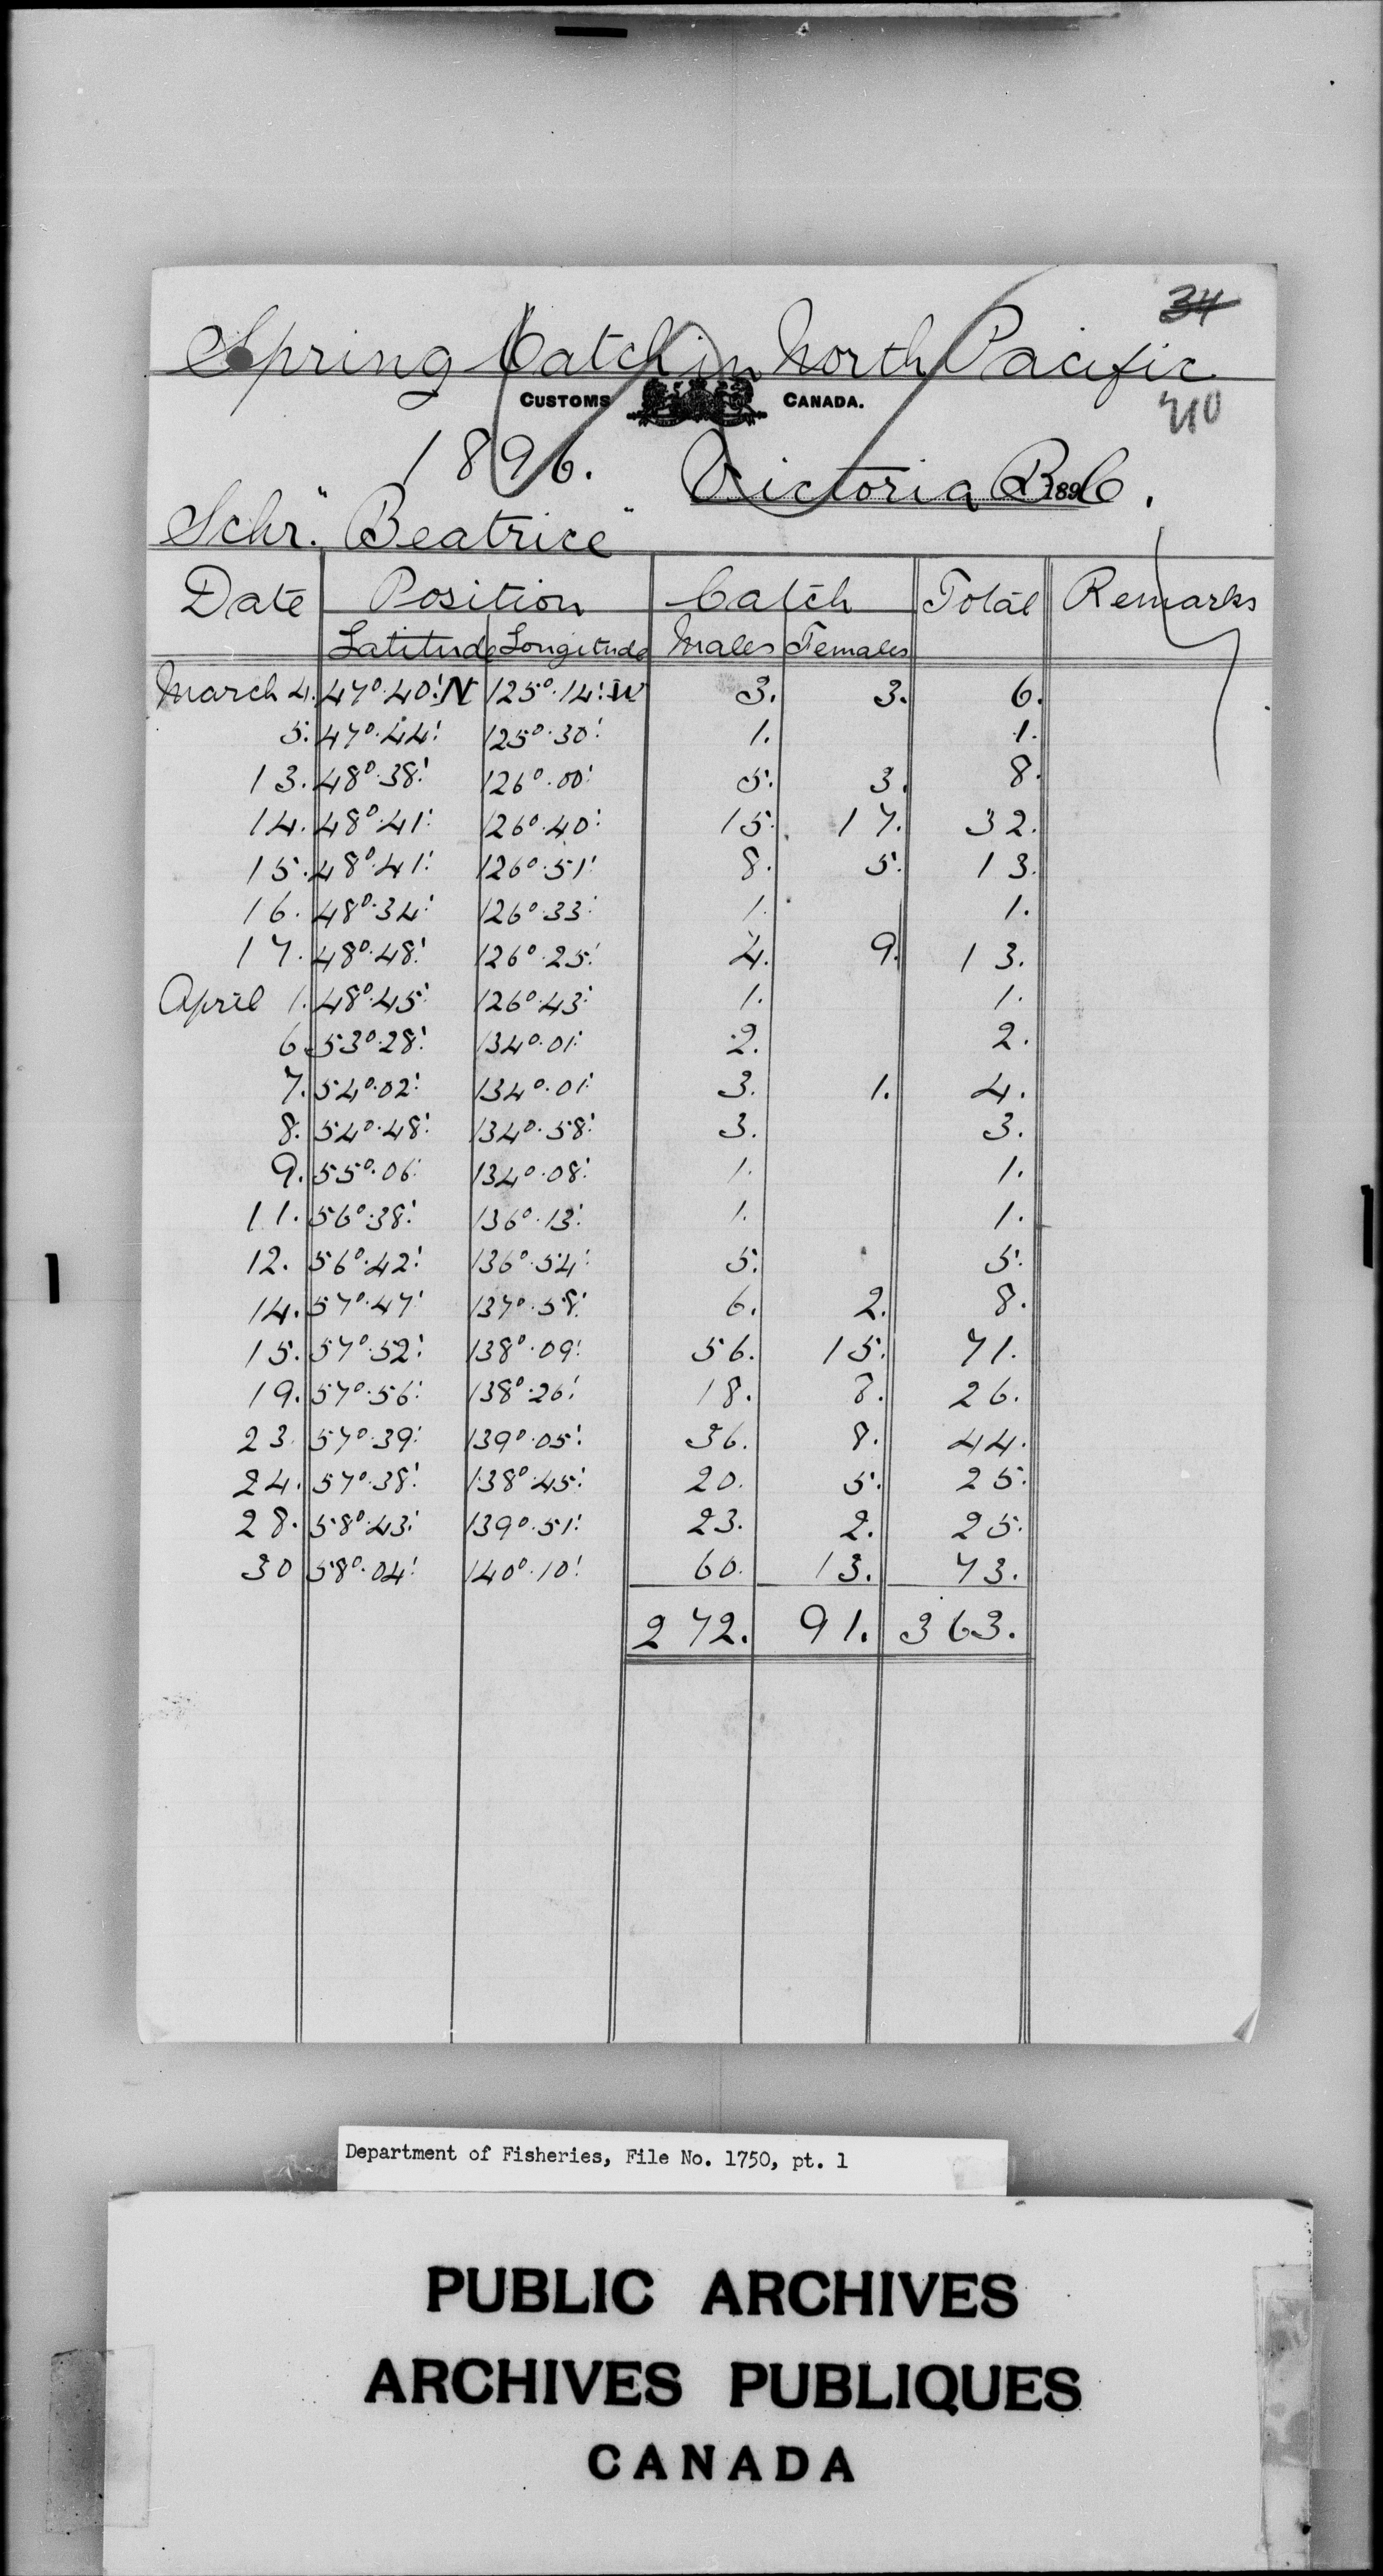 34
Spring Catch in North Pacific
CUSTOMS CANADA.
1896. Victoria B.C. 189
Schr. "Beatrice"
Date Position Catch Total Remarks
Latitude Longitude Males Females
March 4. 47°.40'.N 125°.14'.W 3. 3. 6.
5. 47°.44' 125°.30' 1. 1.
13. 48°.38' 126°.00' 5. 3. 8.
14. 48°.41' 126°.40' 15. 17. 32.
15. 48°.41' 126°.51' 8. 5. 13.
16. 48°.34' 126°.33' 1. 1.
17. 48°.48' 126°.25' 4. 9. 13.
April 1. 48°.45' 126°.43' 1. 1.
6. 53°.28' 134°.01' 2. 2.
7. 54°.02' 134°.01' 3. 1. 4.
8. 54°.48' 134°.58' 3. 3.
9. 55°.06' 134°.08' 1. 1.
11. 56°.38' 136°.13' 1. 1.
12. 56°.42' 136°.54' 5. 5.
14. 57°.47' 137°.58' 6. 2. 8.
15. 57°.52' 138°.09' 56. 15. 71.
19. 57°.56' 138°.26' 18. 8. 26.
23. 57°.39' 139°.05' 36. 8. 44.
24. 57°.38' 138°.45' 20. 5. 25.
28. 58°.43' 139°.51' 23. 2. 25.
30 58°.04' 140°.10' 60. 13. 73.
272. 91. 363.
Department of Fisheries, File No. 1750, pt. 1
PUBLIC ARCHIVES
ARCHIVES PUBLIQUES
CANADA